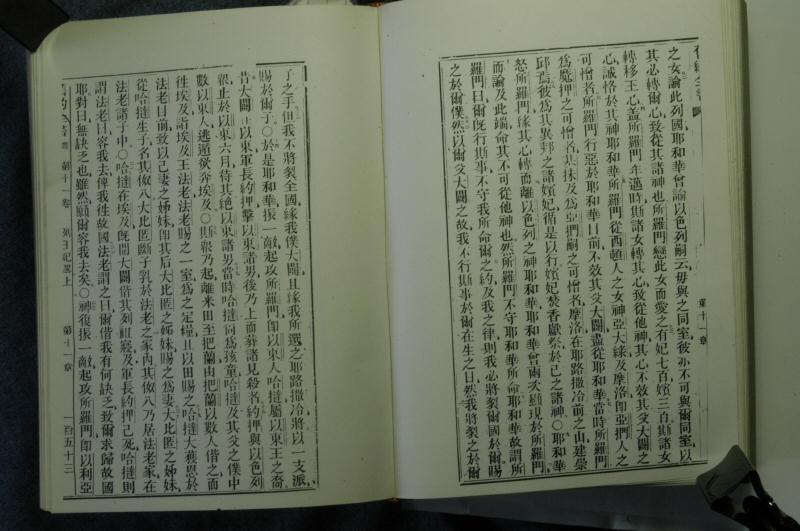 之女論此列國耶和華曾諭以色列嗣云毋與之同室彼亦不可與爾同室以
其必轉爾心致從其諸神也所羅門戀此女而愛之有妃七百嬪三百斯諸女
轉移王心蓋所羅門年邁時斯諸女轉其心致從他神其心不效其父大闢之
心誠恪於其神耶和華所羅門從西頓人之女神亞大綠及摩洛即亞捫人之
可憎者所羅門行惡於耶和華目前不效其父大闢盡從耶和華當時所羅門
為魔押之可憎者其抹及為亞捫嗣之可憎者摩洛在耶路撒冷前之山建崇
邱焉彼為其異邦之諸嬪妃循是以行嬪妃焚香獻祭於己之諸神〇耶和華
怒所羅門緣其心轉而離以色列之神耶和華耶和華曾兩次顯現於所羅門
而諭及此端命其不可從他神也然所羅門不守耶和華所命耶和華故謂所
羅門曰爾既行斯事不守我所命爾之約及我之律則我必將裂爾國於爾賜
之於爾僕然以爾父大闢之故我不行斯事於爾在生之日然我將裂之於爾
第十一章
子之手但我不將裂全國緣我僕大闢且緣我所選之耶路撒冷將以一支派
賜於爾子〇於是耶和華振一敵起攻所羅門即以東人哈撻屬以東王之裔
昔大闢 以東軍長約押擊以東諸男後乃上而葬諸見殺者約押與以色列
眾止於以東六月待其絕以東諸男當時哈撻尚為孩童哈撻及其父之僕中
數以東人逃遁欲奔埃及〇斯眾乃起離米田至把蘭由把蘭以數人偕之而
徃埃及詣埃及王法老法老賜之一室為之定糧且以田賜之哈撻大獲恩於
法老目前致以己妻之姊妹即其后大比匿之姊妹賜之為妻大比匿之姊妹
從哈撻生子名其傲八大比匿斷子乳於法老之家內其傲八乃居法老家在
法老諸子中〇哈撻在埃及既聞大闢偕其列祖寢及軍長約押已死哈撻則
謂法老曰容我去俾我徃故國法老謂之曰爾偕我有何缺乏致爾求歸故國
耶對曰無缺乏也雖然願爾容我去矣〇神復振一敵起攻所羅門即以利亞
第十一卷 列王記畧上 第十一章 一百五十三